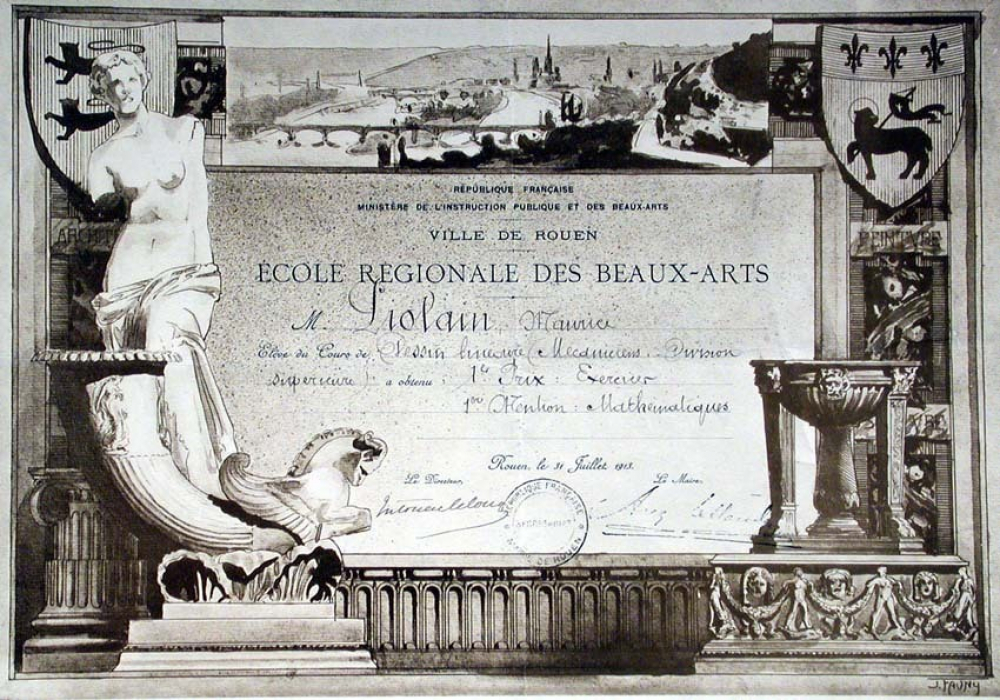 RÉPUBLIQUE FRANÇAISE
MINISTÈRE DE L'INSTRUCTION PUBLIQUE ET DES BEAUX-ARTS
VILLE DE ROUEN
ÉCOLE RÉGIONALE DES BEAUX-ARTS
M. Liolain Maurice
Elève du Cours de Dessin linéaire (Mécaniciens. Division
supérieure) a obtenu : 1er Prix : Exercices
1ère Mention : Mathématiques
Rouen, le 31 Juillet 1913.
Le Directeur, Le Maire,
RÉPUBLIQUE FRANÇAISE
DE ROUEN
ARCHIT
PEINTURE